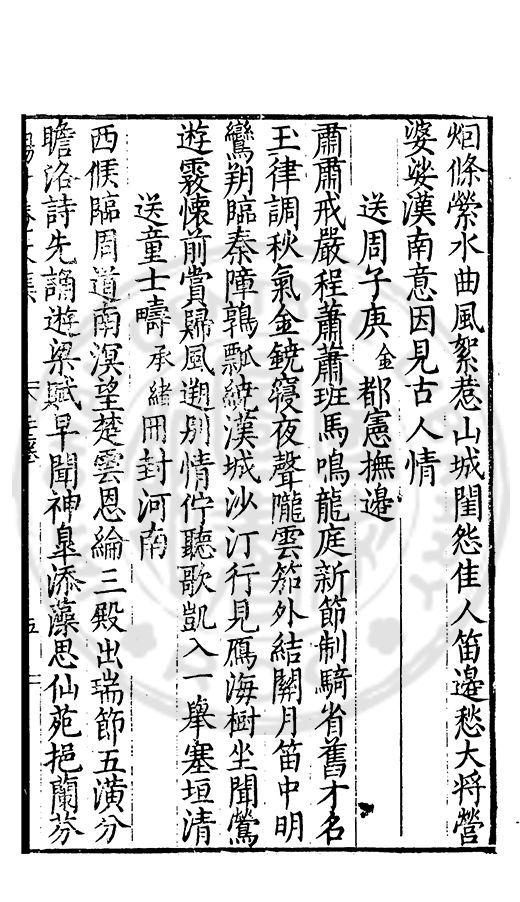 烟條縈水曲風絮惹山城閨怨佳人笛邊愁大將營
婆娑漢南意因見古人情
送周子庚金都憲撫邊
肅肅戒嚴程蕭蕭班馬鳴龍庭新節制騎省舊才名
玉律調秋氣金鐃寢夜聲隴雲笳外結關月笛中明
鸞翔臨秦障鶉瓢繞漢城沙汀行見鴈海樹坐聞鶯
遊霧懷前賞歸風遡別情佇聽歌凱入一舉塞垣清
送童士疇承緒冊封河南
西候臨周道南溟望楚雲恩綸三殿出瑞節五潢分
瞻洛詩先誦遊梁賦早聞神皐添藻思仙苑挹蘭芬